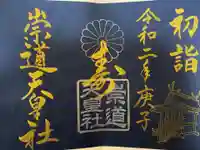 初詣
令和二年庚子
寿
崇道天皇社
崇道天皇社